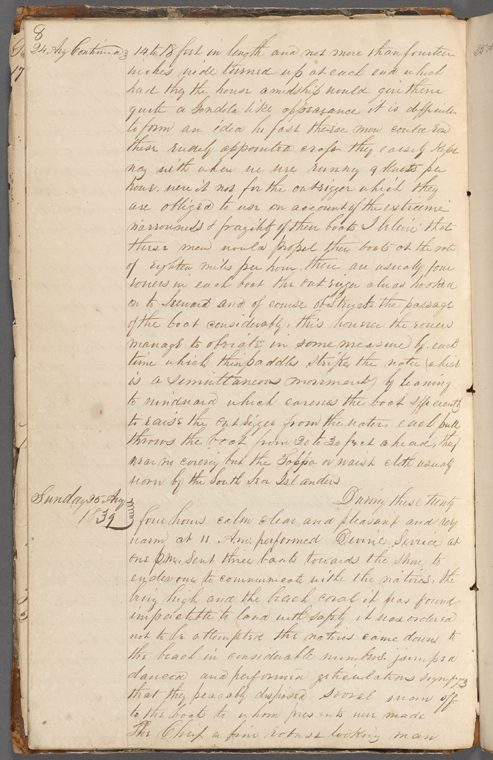 8
24. Aug Continued 14 to 18 feet in length and not more than fourteen
inches wide turned up at each end which
had they the house amidship would give them
quite a Gondola like appearance it is difficult
to form an idea how fast these men could row
these rudely appointed crafts they easily kept
way with when we were running 9 Knots per
hour. were it not for the outrigger which they
are obliged to use on account of the extreme
narrowness & fragility of their boats I believe that
these men would propel their boats at the rate
of eighteen miles per hour. there are usually four
rowers in each boat the outrigger always hooked
on to leeward and of course obstructs the passage
of the boat considerably, this however the rowers
manage to obviate in some measure by each
time which their paddles strikes the water (which
is a semultaneous movement) by leaning
to windward which careens the boat sufficiently
to raise the outrigger from the water. each pull
throws the boat from 20 to 30 feet ahead, they
wear no covering but the Tappa or waist cloth usually
worn by the South Sea Islanders
Sunday 25. Aug During these twenty
1839 four hours calm clear and pleasant and very
warm at 11 Am performed Divine Service at
one P.M. sent three boats towards the Shore to
endeavour to communicate with the natives. the
being high and the beach coral it was found
impossible to land with safety it was ordered
not to be attempted the natives came down to
the beach in considerable numbers jumped
danced and performed jesticulations
that they peacably disposed several swam off
to the boats to whom presents were made
The Chief a fine robust looking man